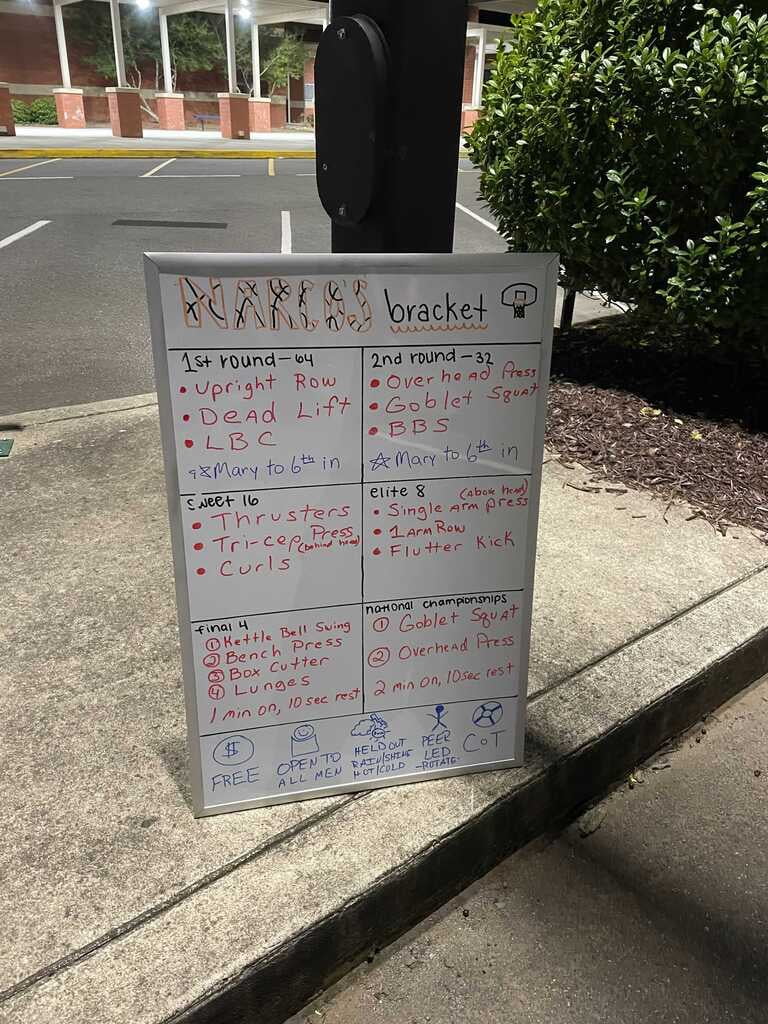 NARCO'S bracket
1st round - 64
• Upright Row
• Dead Lift
• LBC
☆Mary to 6th in
2nd round - 32
• Overhead Press
• Goblet Squat
• BBS
☆ Mary to 6th in
Sweet 16
• Thrusters
• Tri-cep Press
(behind head)
• Curls
elite 8 (above head)
• Single Arm press
• 1 Arm Row
• Flutter Kick
final 4
① Kettle Bell Swing
② Bench Press
③ Box Cutter
④ Lunges
1 min on, 10 sec rest
national championships
① Goblet Squat
② Overhead Press
2 min on, 10 sec rest
$
FREE
OPEN TO
ALL MEN
HELD OUT
RAIN/SHINE
HOT/COLD
PEER
LED
-ROTATE-
COT